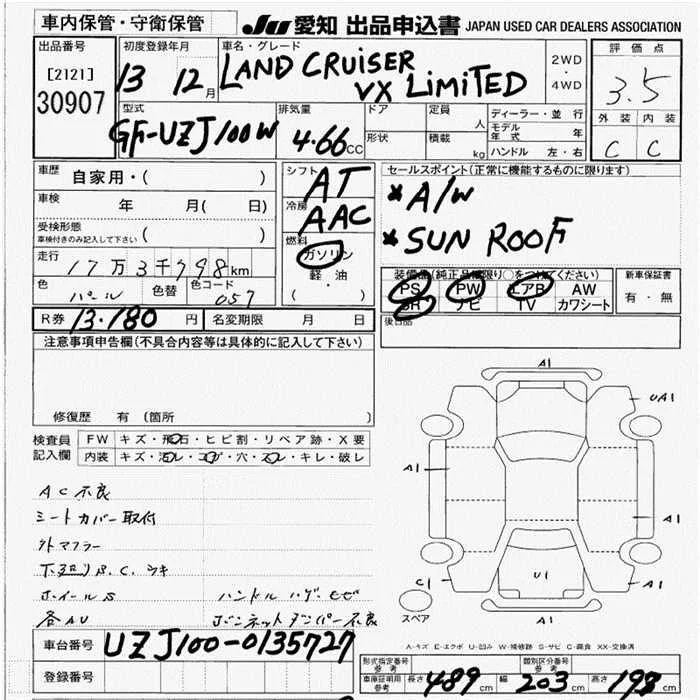 車内保管・守衛保管
JU 愛知 出品申込書 JAPAN USED CAR DEALERS ASSOCIATION
出品番号
[2121]
30907
初度登録年月
13 12月
車名・グレード
LAND CRUISER
VX LIMITED
2WD
・
4WD
評価点
3.5
外装 内装
C C
型式
GF-UZJ100W
排気量
4.66cc
ドア
形状
定員 人
積載 kg
ディーラー・並行
モデル年式 年
ハンドル 左・右
車歴 自家用・( )
車検 年 月( 日)
受検形態
車検付きのみ記入して下さい ( )
走行 17万3千798km
色 パール 色替 色コード 057
シフト AT
冷房 AAC
燃料
ガソリン
軽・油
( ・ )
セールスポイント(正常に機能するものに限ります)
*A/W
*SUN ROOF
装備品(純正品に限り○をつけてください)
PS PW エアB AW
SR ナビ TV カワシート
新車保証書
有・無
後日品
R券 13.180円 名変期限 月 日
注意事項申告欄(不具合内容等は具体的に記入して下さい)
修復歴 有 (箇所 )
検査員記入欄
FW キズ・飛石・ヒビ割・リペア跡・X要
内装 キズ・汚レ・コゲ・穴・スレ・キレ・破レ
AC不良
シートカバー取付
外マフラー
下廻りB.C.サキ
ホイールS ハンドルハゲ
各AU ボンネットダンパー不良
A1
UA1
A1
A1
C1
U1
A1
A1
スペア
車台番号 UZJ100-0135727
登録番号
A-キズ E-エクボ U-凹み W-補修跡 S-サビ C-腐食 XX-交換済
形式指定番号 参考
類別区分番号 参考
車庫証明用 参考 長さ 489cm 幅 203cm 高さ 198cm